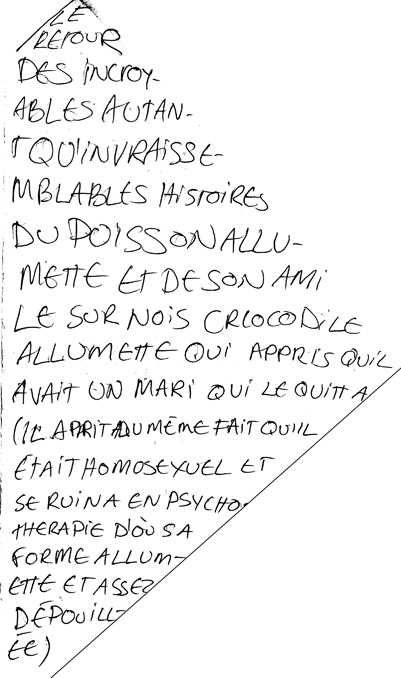 LE
RETOUR
DES INCROY-
ABLES AUTAN-
T QU'INVRAISSE-
MBLABLES HISTOIRES
DU POISSON ALLU-
METTE ET DE SON AMI
LE SURNOIS CRCOCODILE
ALLUMETTE QUI APPRIS QU'IL
AVAIT UN MARI QUI LE QUITTA
(IL APRIT DU MÊME FAIT QU'IL
ÉTAIT HOMOSEXUEL ET
SE RUINA EN PSYCHO-
THERAPIE D'OÙ SA
FORME ALLUM-
ETTE ET ASSEZ
DÉPOUILL-
ÉE)